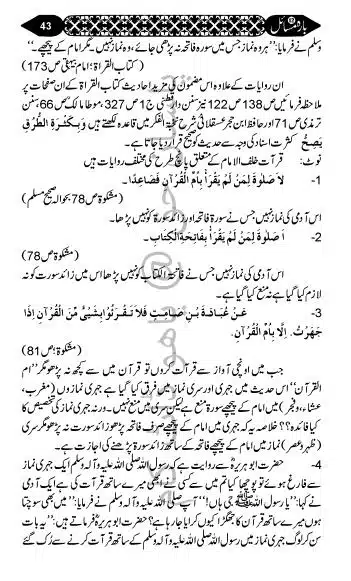 43 بارہ مسائل
وسلم نے فرمایا: "ہر وہ نماز جس میں سورۃ فاتحہ نہ پڑھی جائے، وہ نماز نہیں مگر امام کے پیچھے۔"
(کتاب القراۃ: امام بیہقی ص173)
ان روایات کے علاوہ اس مضمون کی مزید احادیث کتاب القراۃ کے ان صفحات پر
ملاحظہ فرمائیں ص138 ص122 نیز سنن دار قطنی ج1 ص327 موطا مالک ص66 سنن
ترمذی ص71 اور حافظ ابن حجر عسقلانی شرح نخبۃ الفکر میں قاعدہ لکھتے ہیں وَبِكَثْرَةِ الطُّرُقِ
يَصِحُّ کثرت اسناد کی وجہ سے حدیث کو صحیح قرار دیا جاتا ہے۔
نوٹ: قرآت خلف الامام کے متعلق پانچ طرح کی مختلف روایات ہیں
1- لَا صَلٰوةَ لِمَنْ لَّمْ يَقْرَأْ بِاُمِّ الْقُرْآنِ فَصَاعِدًا۔
(مشکوۃ ص78 بحوالہ صحیح مسلم)
اس آدمی کی نماز نہیں جس نے سورۃ فاتحہ اور زائد سورۃ کو نہیں پڑھا۔
2- لَا صَلٰوةَ لِمَنْ لَّمْ يَقْرَأْ بِفَاتِحَةِ الْكِتَابِ۔
(مشکوۃ ص78)
اس آدمی کی نماز نہیں جس نے فاتحۃ الکتاب کو نہیں پڑھا اس میں زائد سورۃ کو نہ
لازم کیا گیا ہے نہ منع کیا گیا ہے۔
3- عَنْ عُبَادَةَ بْنِ صَامِتٍ فَلَا تَقْرَئُوْا بِشَيْئٍ مِّنَ الْقُرْآنِ اِذَا
جَهَرْتُ. اِلَّا بِاُمِّ الْقُرْآنِ.
(مشکوۃ: ص81)
جب میں اونچی آواز سے قرآت کروں تو قرآن میں سے کچھ نہ پڑھو مگر "ام
القرآن" اس حدیث میں جہری اور سری نماز میں فرق کیا گیا ہے جہری نمازوں (مغرب،
عشاء، و فجر) میں امام کے پیچھے سورۃ منع ہے لیکن سری میں منع نہیں۔ ورنہ جہری نماز کی تخصیص کا
کیا فائدہ؟؟ خلاصہ یہ کہ جہری میں امام کے پیچھے صرف فاتحہ پڑھو زائد سورۃ نہ پڑھو مگر سری
(ظہر و عصر) نماز میں امام کے پیچھے فاتحہ کے ساتھ زائد سورۃ پڑھنے کی اجازت ہے۔
4- حضرت ابو ہریرہؓ سے روایت ہے کہ رسول اللہ صلی اللہ علیہ وآلہ وسلم ایک جہری نماز
سے فارغ ہوئے تو پوچھا کیا تم میں سے کسی نے ابھی میرے ساتھ قرآت کی ہے ایک آدمی
نے کہا: "یا رسول اللہ ﷺ جی ہاں!" آپ صلی اللہ علیہ وآلہ وسلم نے فرمایا: "میں بھی سوچتا
ہوں میرے ساتھ قرآن کا جھگڑا کیوں کرایا جا رہا ہے؟ حضرت ابو ہریرہؓ فرماتے ہیں: "یہ بات
سن کر لوگ جہری نماز میں رسول اللہ صلی اللہ علیہ وآلہ وسلم کے ساتھ قرآت کرنے سے رک گئے